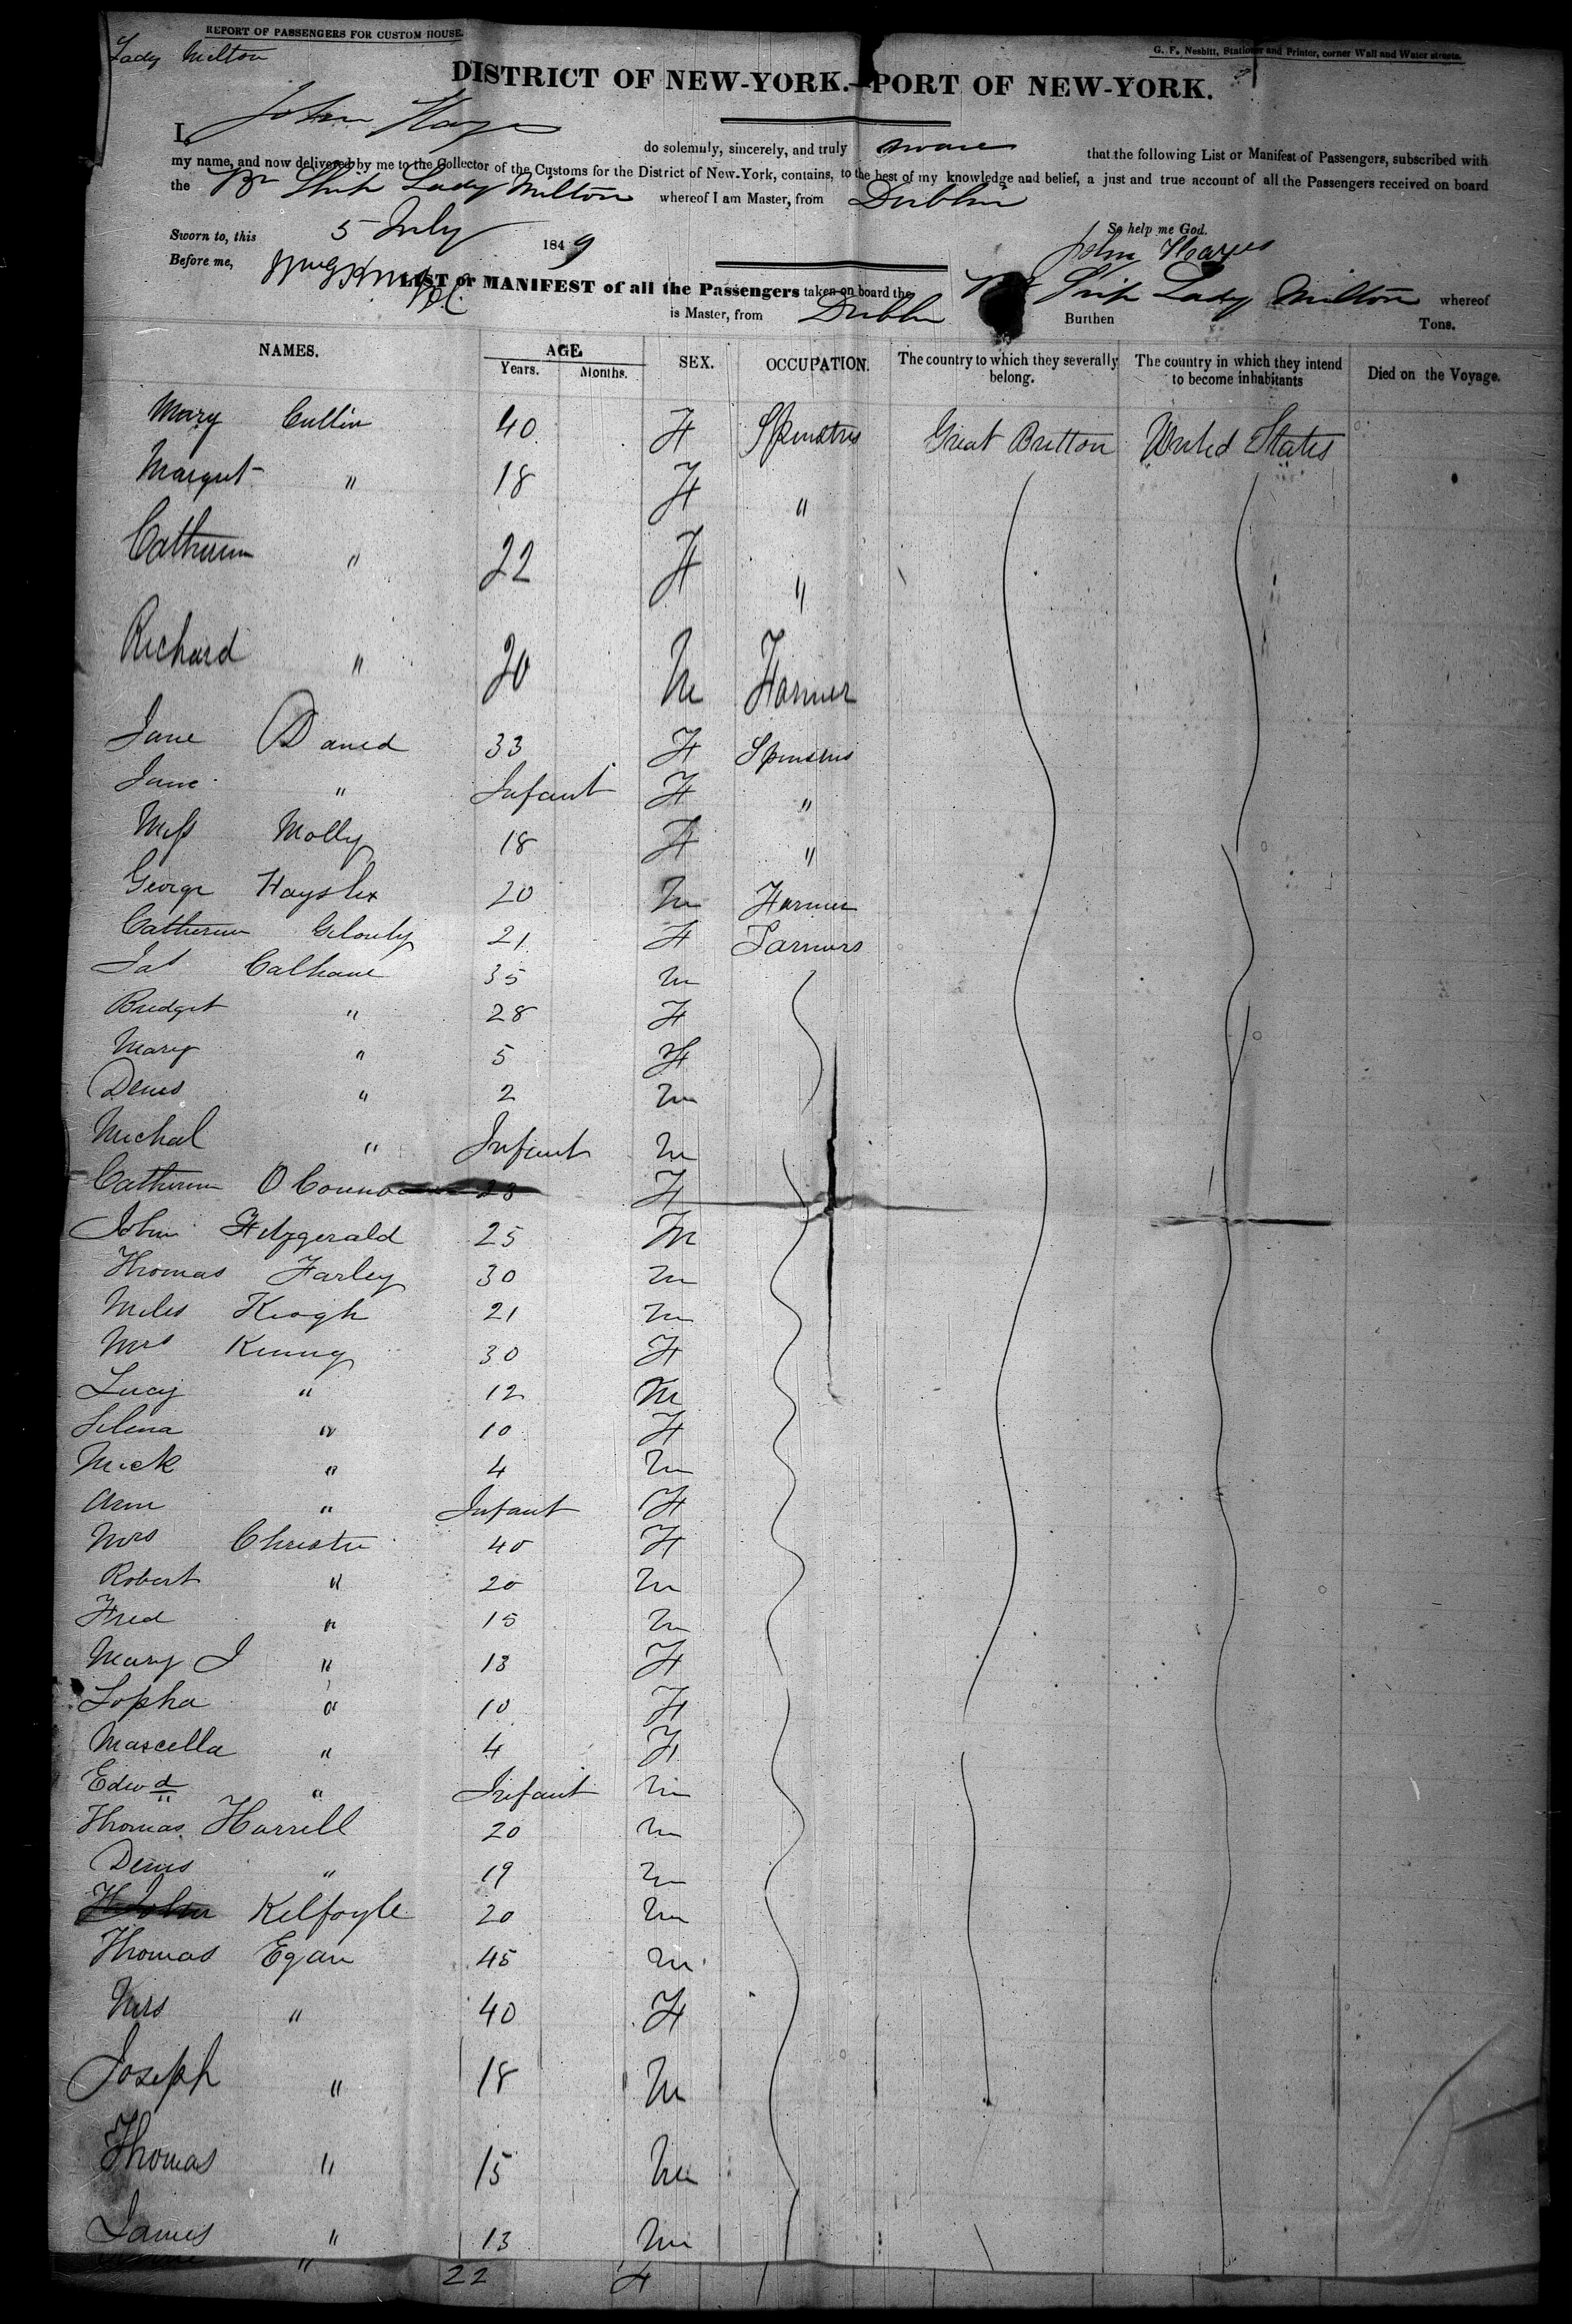 REPORT OF PASSENGERS FOR CUSTOM HOUSE.
G. F. Nesbitt, Stationer and Printer, corner Wall and Water streets.
Lady Milton
DISTRICT OF NEW-YORK.—PORT OF NEW-YORK.
I, John Hayes do solemnly, sincerely, and truly sware that the following List or Manifest of Passengers, subscribed with
my name, and now delivered by me to the Collector of the Customs for the District of New-York, contains, to the best of my knowledge and belief, a just and true account of all the Passengers received on board
the Br Ship Lady Milton whereof I am Master, from Dublin
So help me God.
Sworn to, this 5 July 1849
John Hayes
Before me,
LIST or MANIFEST of all the Passengers taken on board the Ship Lady Milton whereof
is Master, from Dublin Burthen Tons.
NAMES. AGE. SEX. OCCUPATION. The country to which they severally belong. The country in which they intend to become inhabitants Died on the Voyage.
Years. Months.
Mary Cullin 40 F Spinstrs Great Britton United States
Margret " 18 F "
Catherin " 22 F "
Richard " 20 M Farmer
Jane Daued 33 F Spinstrs
Jane " Infant F "
Miss Molly 18 F "
George 20 M Farmer
Catherin 21 F Farmers
Jas Calhane 35 M
Bridget " 28 F
Mary " 5 F
Denis " 2 M
Michal " Infant M
Catherin O Connor 23 F
John Fitzgerald 25 M
Thomas Farley 30 M
Miles Keogh 21 M
Mrs Kenny 30 F
Lucy " 12 M
Selena " 10 F
Mick " 4 M
Ann " Infant F
Mrs Christie 40 F
Robert " 20 M
Fred " 15 M
Mary J " 13 F
Sopha " 10 F
Marcella " 4 F
Edwd " Infant M
Thomas Harrell 20 M
Denis " 19 M
John Kilfoyle 20 M
Thomas Egan 45 M
Mrs " 40 F
Joseph " 18 M
Thomas " 15 M
James " 13 M
" 22 F